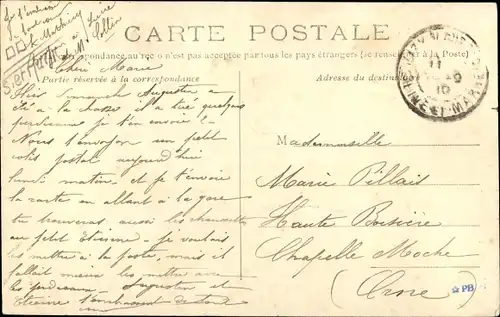 CARTE POSTALE
La Correspondance au recto n'est pas acceptée par tous les pays étrangers (Se renseigner à la Poste)
Partie réservée à la correspondance
Adresse du destinataire
Chère Marie
Hier Dimanche Augustin a
été à la chasse il a tué quelques
perdreaux je t'en envoie
Nous t'envoyons un petit
colis postal aujourd'hui
lundi matin, et je t'envoie
la carte en allant à la gare
tu trouveras aussi les chaussettes
au petit Etienne je voulais
les mettre à la poste, mais il
fallait mieux les mettre avec
les perdreaux Augustin et
Etienne
Mademoiselle
Marie Pillais
Haute Boisière
Chapelle Moche
(Orne)
SEINE-ET-MARNE
11
10
PB